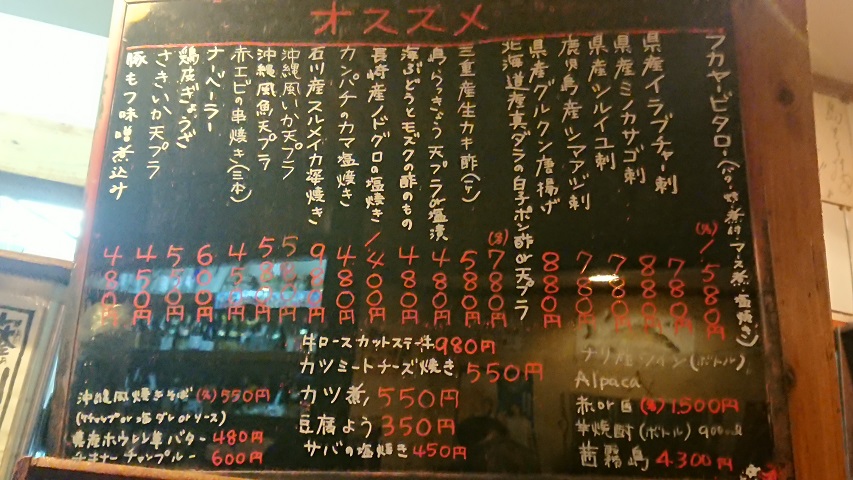 オススメ
フカヤービタロー(バター焼き・煮付・マース煮・塩焼き) (小)1580円
県産イラブチャー刺 780円
県産ミノカサゴ刺 880円
県産シルイユ刺 780円
鹿児島産シマアジ刺 780円
県産グルクン唐揚げ 880円
北海道産真ダラの白子ポン酢or天プラ (小)780円
三重産生カキ酢(二ケ) 580円
島らっきょう天プラor塩漬 480円
海ぶどうとモズクの酢のもの 480円
長崎産ノドグロの塩焼き 1400円
カンパチのカマ塩焼き 480円
石川産スルメイカ姿焼き 980円
沖縄風いか天プラ
沖縄風魚天プラ 580円
赤エビの串焼き(三本) 450円
ナーベーラー 600円
鶏皮ぎょうざ 500円
さきいか天プラ 450円
豚もつ味噌煮込み 480円
牛ロースカットステーキ 980円
カツミートチーズ焼き 550円
カツ煮 550円
豆腐よう 350円
サバの塩焼き 450円
沖縄風焼きそば(小)550円
(ケチャップor塩ダレorソース)
県産ホウレン草バター 480円
チャンプルー 600円
チリ産ワイン(ボトル)
Alpaca
赤or白 1,500円
芋焼酎(ボトル)900ml
茜霧島 4,300円